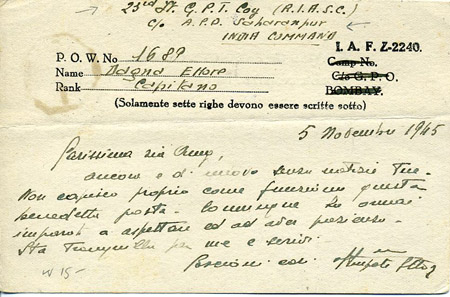 25rd Ft. G.P.T. Coy (R.I.A.S.C.)
c/o A.P.O. Saharanpur
INDIA COMMAND
I. A. F. Z-2240.
P. O. W. No 1689
Camp No.
Name Magna Ettore
C/o G. P. O.
Rank Capitano
BOMBAY.
(Solamente sette righe devono essere scritte sotto)
5 Novembre 1945
Carissima mia
ancora e di nuovo senza notizie Tue.
Non capisco proprio come funzioni questa
benedetta posta. Comunque ho ormai
imparato a aspettare ed ad aver pazienza.
Sta tranquilla per me e scrivi.
Bacioni cari Ettore
W 15-